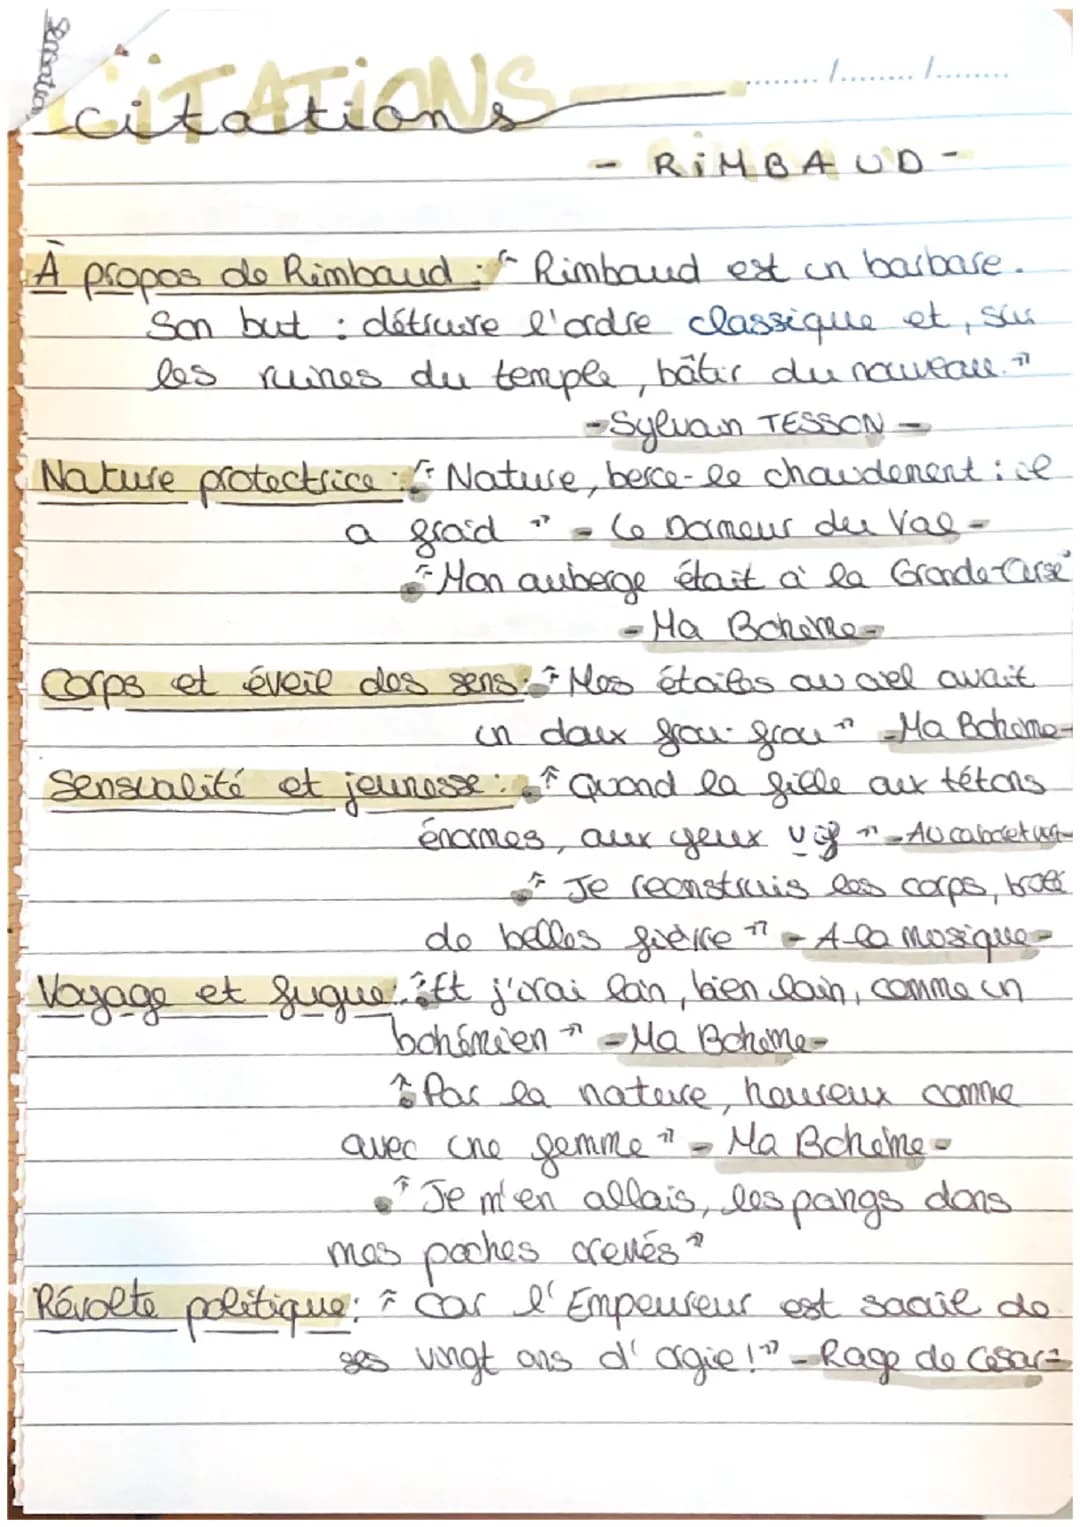 Sensation
CITATIONS
citations
...../...../.....
- RIMBAUD -
À propos de Rimbaud : " Rimbaud est un barbare.
Son but : détruire l'ordre classique et, sur
les ruines du temple, bâtir du nouveau. "
- Sylvain TESSON -
Nature protectrice : " Nature, berce-le chaudement : il
a froid " - Le Dormeur du Val -
" Mon auberge était à la Grande-Ourse "
- Ma Bohème -
Corps et éveil des sens : " Mes étoiles au ciel avait
un doux frou-frou " - Ma Bohème -
Sensualité et jeunesse : " Quand la fille aux tétons
énormes, aux yeux vif " - Au cabaret vert -
" Je reconstruis les corps, brûlé
de belles fièvre " - A la Mosique -
Voyage et fugue : " Et j'irai loin, bien loin, comme un
bohémien " - Ma Bohème -
" Par la nature, heureux comme
avec une femme " - Ma Bohème -
" Je m'en allais, les poings dans
mes poches crevés "
Révolte politique : " Car l'Empeureur est saoûl de
ses vingt ans d'orgie ! " - Rage de César -